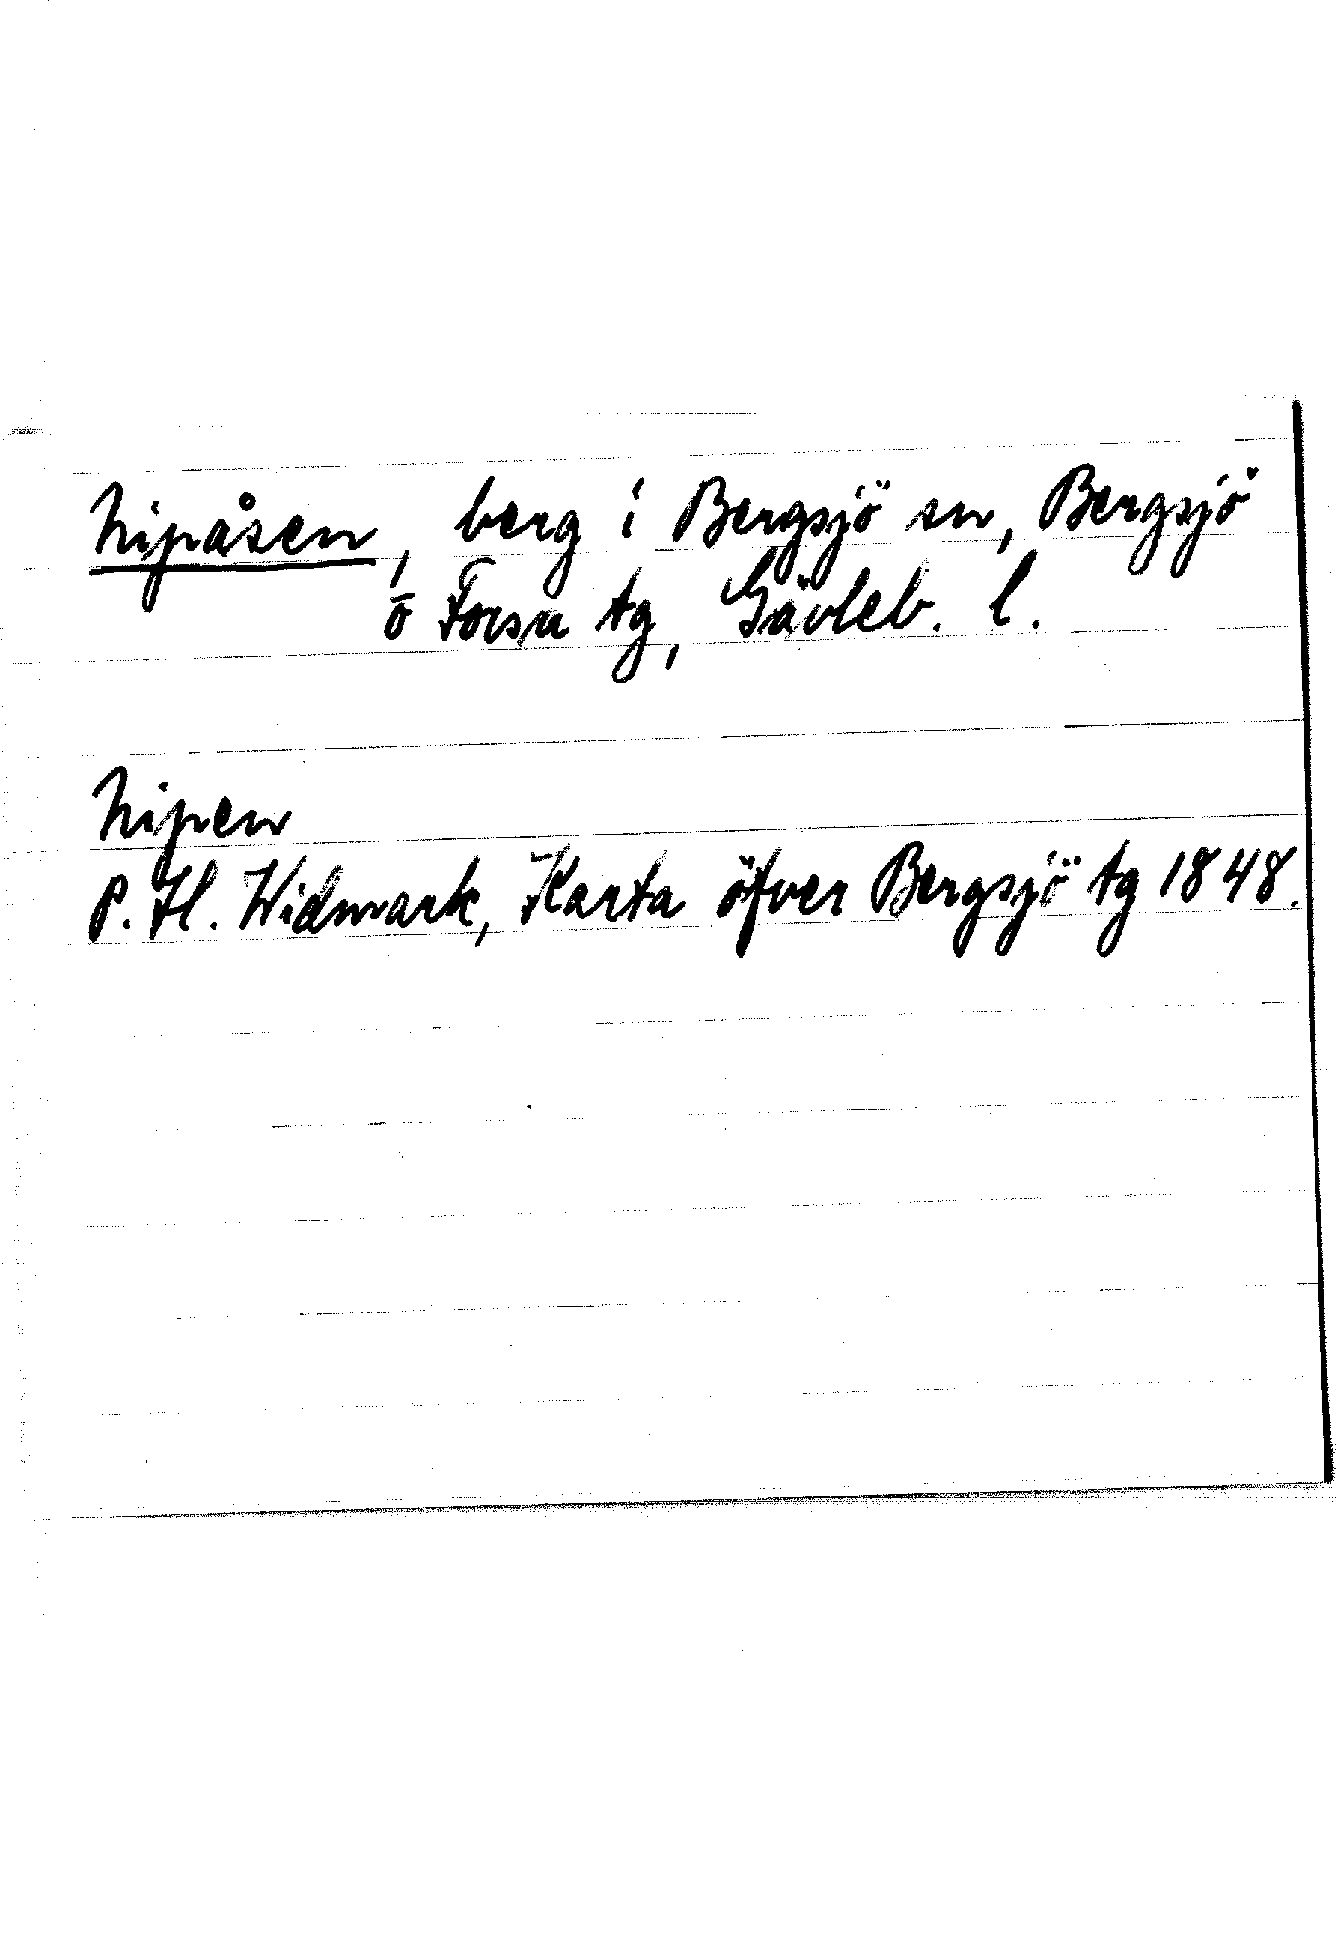 Nipåsen, berg i Bergsjö sn, Bergsjö
o Forsa tg, Gävleb. l.
Nipen
P. H. Widmark, Karta öfver Bergsjö tg 1848.